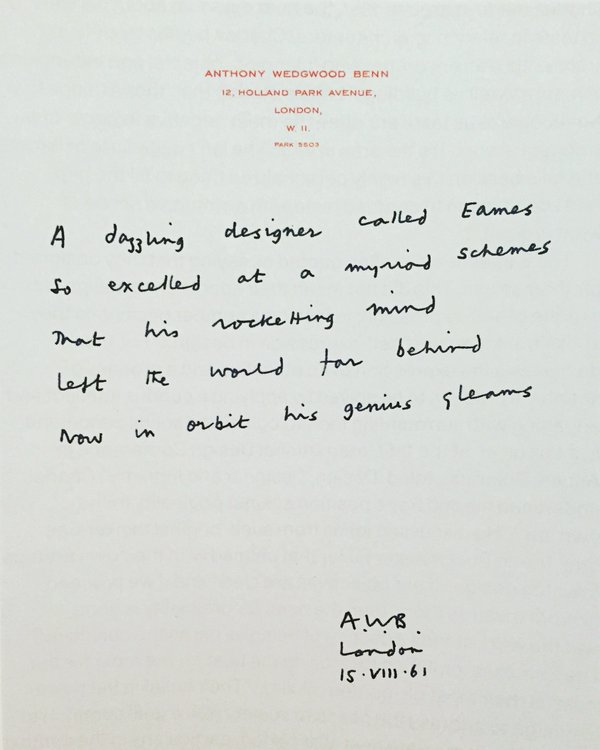 ANTHONY WEDGWOOD BENN
12, HOLLAND PARK AVENUE,
LONDON,
W. 11.
PARK 5503
A dazzling designer called Eames
So excelled at a myriad schemes
That his rocketting mind
left the world far behind
Now in orbit his genius gleams
A.W.B.
London
15·VIII·61